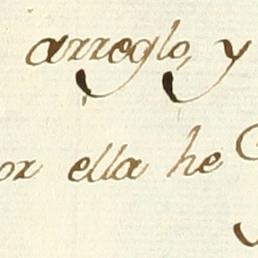 arreglo, y
or ella he